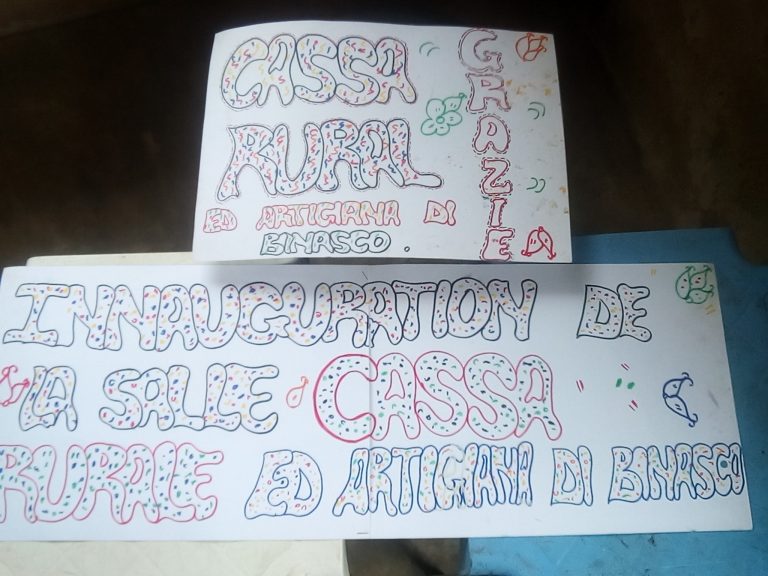 CASSA
RURAL
ED ARTIGIANA DI
BINASCO.
GRAZIE
INNAUGURATION DE
LA SALLE CASSA
RURALE ED ARTIGIANA DI BINASCO